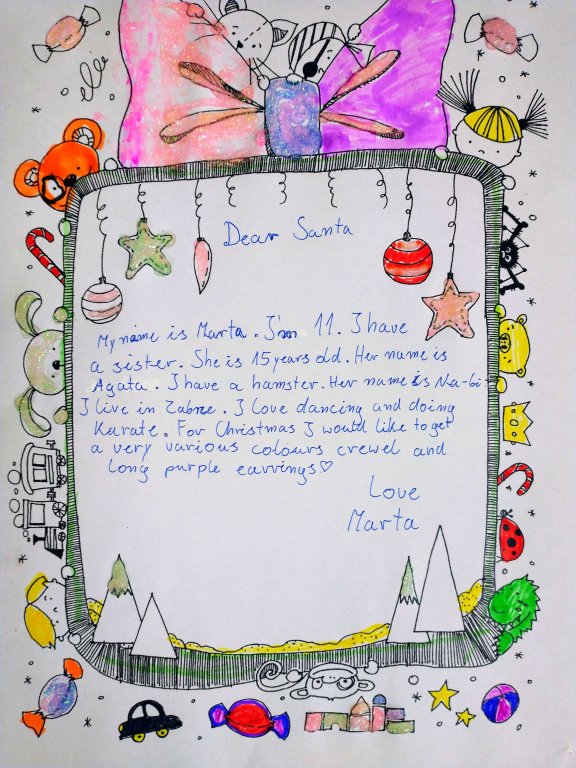 Dear Santa
My name is Marta. I'm 11. I have
a sister. She is 15 years old. Her name is
Agata. I have a hamster. Her name is Na-bi.
I live in Zabrze. I love dancing and doing
Karate. For Christmas I would like to get
a very various colours crewel and
long purple earrings♡
Love
Marta